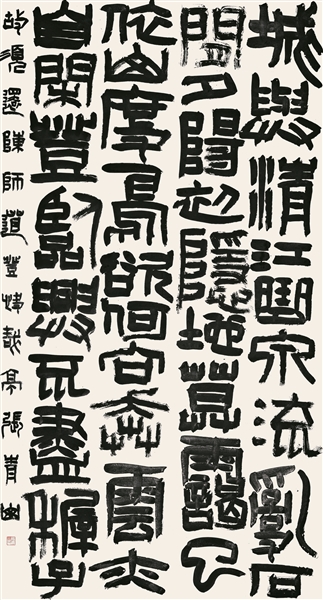 城與清江曲泉流亂石
間夕陽初隱地莫靄已
依山度鳥欲何向奔雲亦
自閑登臨興不盡稚子
故須還陳師道登快哉亭張青